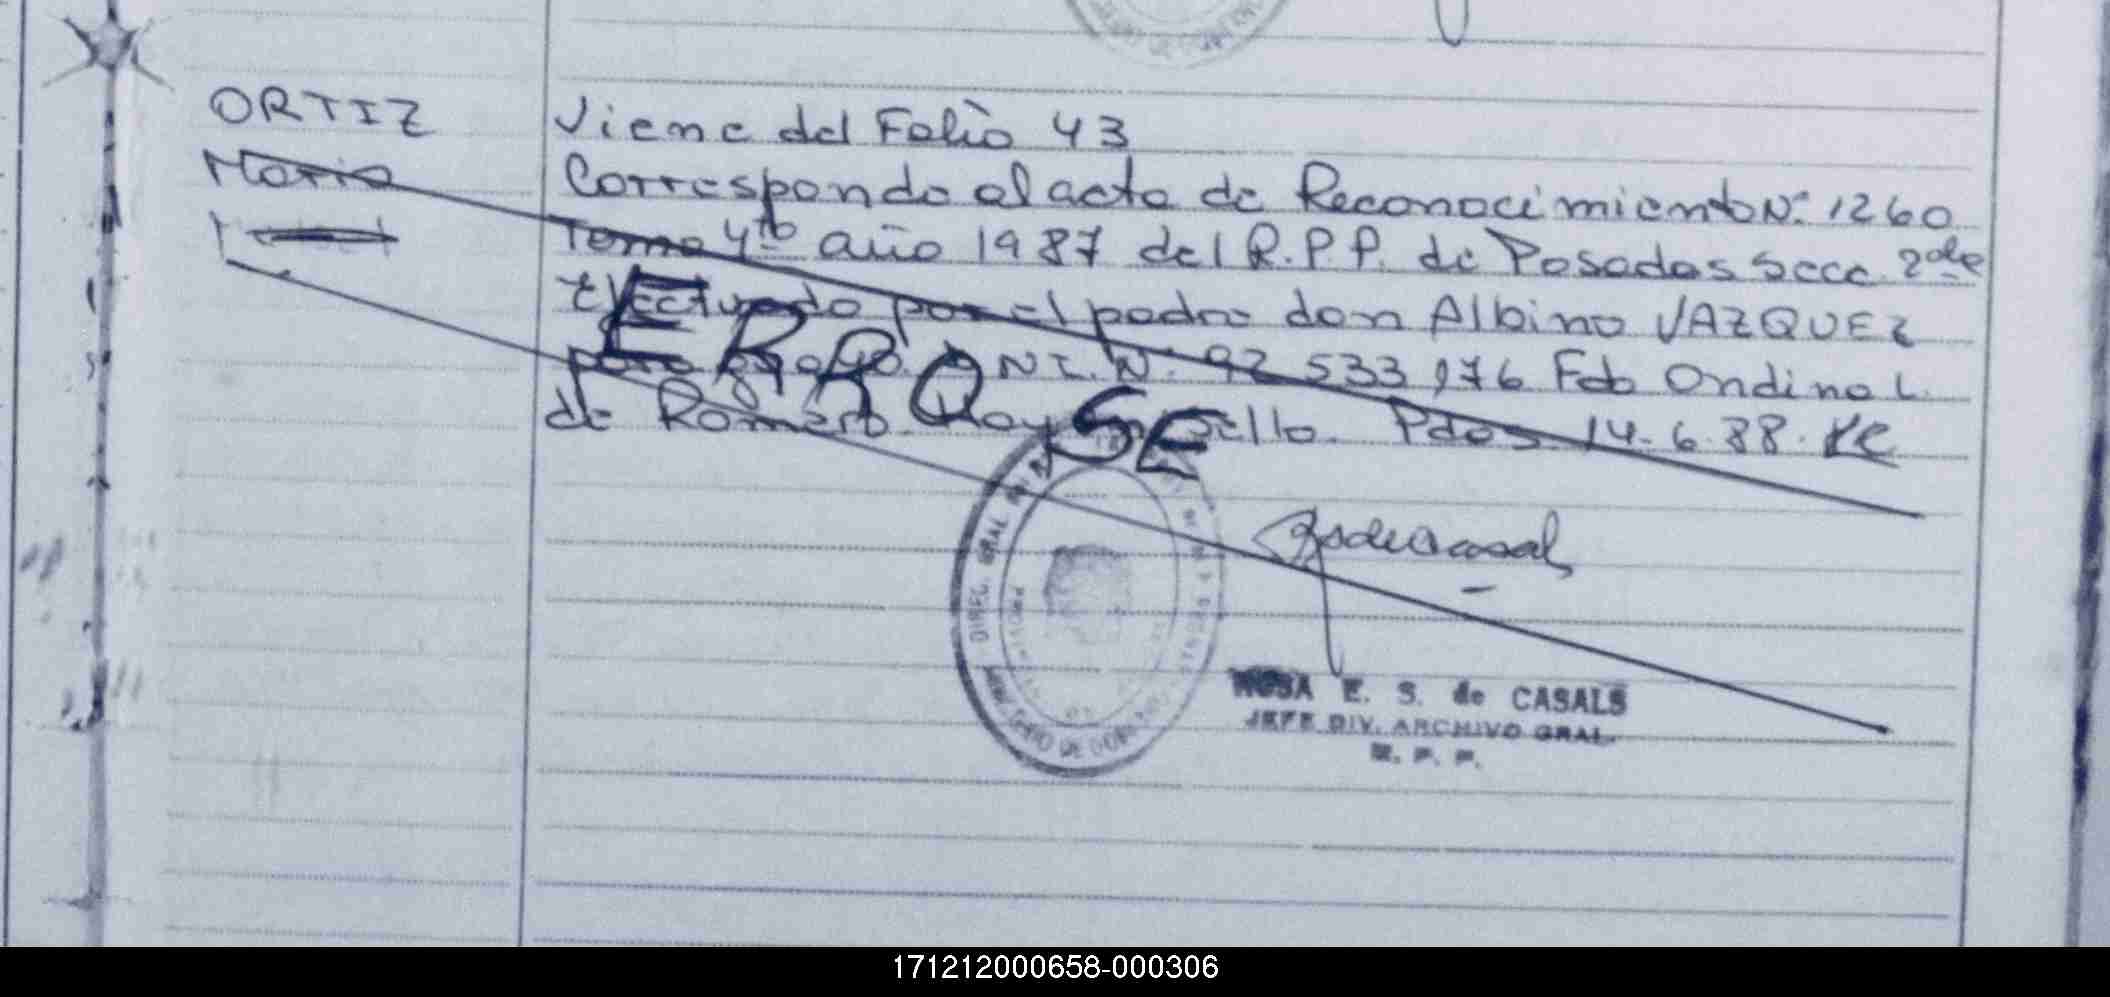 ORTIZ
Maria
Viene del Folio 43
Corresponde al acta de Reconocimiento Nº 1260
Tomo 4to año 1987 del R.P.P. de Posadas Secc. 2da
Efectuado por el padre don Albino VAZQUEZ
para guayo DNI. Nº 92 533 976 Fdo Ondina L.
de Romero. Hay un sello. Pdas 14-6-88.
ERROSE
DIREC. GRAL
DE GOB
E. S. de CASALS
JEFE DIV. ARCHIVO GRAL.
R. P. P.
171212000658-000306